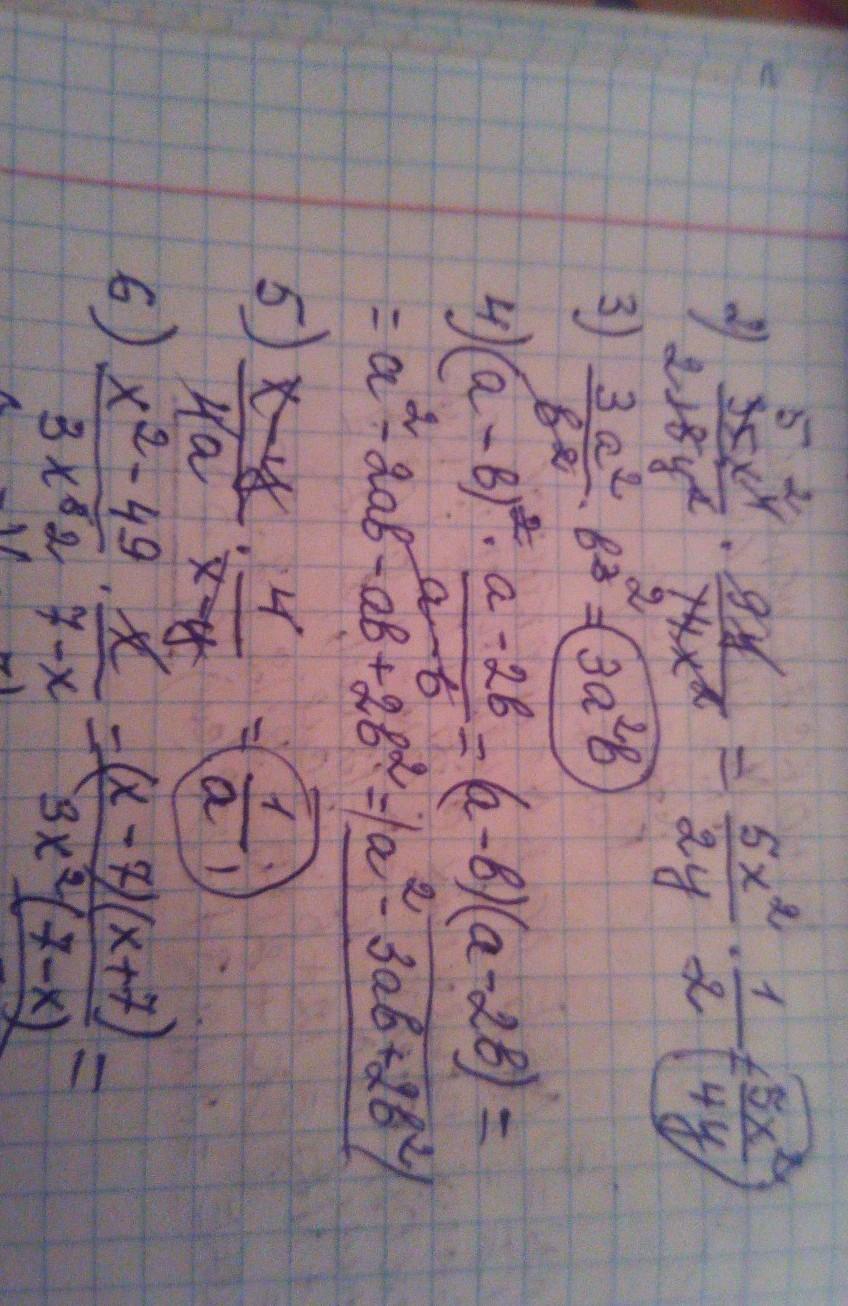 2) 35x⁴/18y² · 9y/14x² = 5x²/2y · 1/2 = 5x²/4y
3) 3a²/b² · b³ = 3a²b
4) (a-b)² · a-2b/a-b = (a-b)(a-2b) =
= a² - 2ab - ab + 2b² = a² - 3ab + 2b²
5) x-y/4a · 4/x-y = 1/a ;
6) x² - 49/3x³ · x/7-x = (x-7)(x+7)/3x²(7-x) =